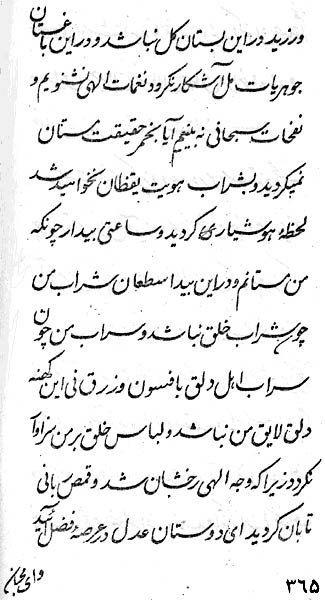 ورزید در این بستان کل نباشد و در این باغستان
جوهریات مل آشکار نکردد نغمات الهی نشنویم و
نفحات سبحانی نه بینیم آیا بخمر حقیقت مستان
نمیکردید و بشراب هویت یقظان نخواهید شد
لحظهٔ هوشیاری کردید و ساعتی بیدار چونکه
من مستانم و در این بیدا سطعان شراب من
چون شراب خلق نباشد و سراب من چون
سراب اهل دلق بافسون و زرق نی این کهنه
دلق لایق من نباشد و لباس خلق بر من سزاوار
نکردد زیرا که وجه الهی رخشان شد و قمص بانی
تابان کردید ای دوستان عدل در عرصهٔ فضل آئید
وای محبان
۳۶۵